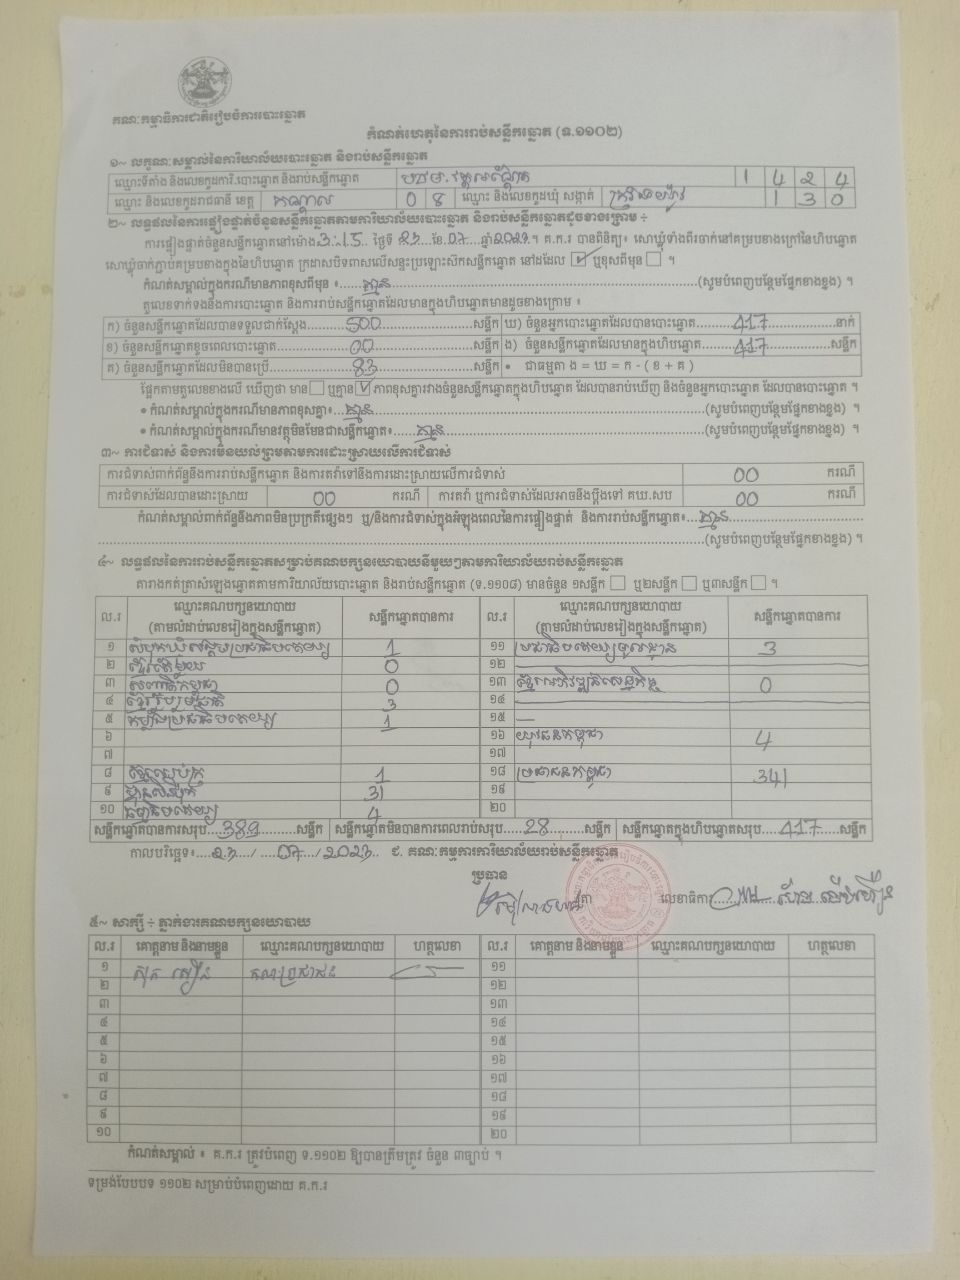 គណៈកម្មាធិការជាតិរៀបចំការបោះឆ្នោត
កំណត់ហេតុនៃការរាប់សន្លឹកឆ្នោត (ទ.១១០២)
១~ លក្ខណៈសម្គាល់នៃការិយាល័យបោះឆ្នោត និងរាប់សន្លឹកឆ្នោត
ឈ្មោះទីតាំង និងលេខកូដការិ.បោះឆ្នោត និងរាប់សន្លឹកឆ្នោត 1 4 2 4
ឈ្មោះ និងលេខកូដរាជធានី ខេត្ត កណ្តាល 0 8 ឈ្មោះ និងលេខកូដឃុំ សង្កាត់ 1 3 0
២~ លទ្ធផលនៃការផ្ទៀងផ្ទាត់ចំនួនសន្លឹកឆ្នោតតាមការិយាល័យបោះឆ្នោត និងរាប់សន្លឹកឆ្នោតដូចខាងក្រោម ÷
ការផ្ទៀងផ្ទាត់ចំនួនសន្លឹកឆ្នោតនៅម៉ោង 3:15 ថ្ងៃទី 23 ខែ 07 ឆ្នាំ 2023។ គ.ក.រ បានពិនិត្យ៖ សោឃ្លុំទាំងពីរចាក់នៅគម្របខាងក្រៅនៃហិបឆ្នោត
សោឃ្លុំចាក់ភ្ជាប់គម្របខាងក្នុងនៃហិបឆ្នោត ក្រដាសបិទពាសលើសន្ទះប្រឡោះស៊កសន្លឹកឆ្នោត នៅដដែល ☑ ឬខុសពីមុន ☐ ។
កំណត់សម្គាល់ក្នុងករណីមានភាពខុសពីមុន ៖ គ្មាន (សូមបំពេញបន្ថែមផ្នែកខាងខ្នង) ។
តួលេខទាក់ទងនឹងការបោះឆ្នោត និងការរាប់សន្លឹកឆ្នោតដែលមានក្នុងហិបឆ្នោតមានដូចខាងក្រោម ៖
ក) ចំនួនសន្លឹកឆ្នោតដែលបានទទួលជាក់ស្តែង 500 សន្លឹក ឃ) ចំនួនអ្នកបោះឆ្នោតដែលបានបោះឆ្នោត 417 នាក់
ខ) ចំនួនសន្លឹកឆ្នោតខូចពេលបោះឆ្នោត 00 សន្លឹក ង) ចំនួនសន្លឹកឆ្នោតដែលមានក្នុងហិបឆ្នោត 417 សន្លឹក
គ) ចំនួនសន្លឹកឆ្នោតដែលមិនបានប្រើ 83 សន្លឹក • ជាធម្មតា ង = ឃ = ក - ( ខ + គ )
ផ្អែកតាមតួលេខខាងលើ ឃើញថា មាន ☐ ឬគ្មាន ☑ ភាពខុសគ្នារវាងចំនួនសន្លឹកឆ្នោតក្នុងហិបឆ្នោត ដែលបានរាប់ឃើញ និងចំនួនអ្នកបោះឆ្នោត ដែលបានបោះឆ្នោត ។
• កំណត់សម្គាល់ក្នុងករណីមានភាពខុសគ្នា៖ គ្មាន (សូមបំពេញបន្ថែមផ្នែកខាងខ្នង) ។
• កំណត់សម្គាល់ក្នុងករណីមានវត្ថុមិនមែនជាសន្លឹកឆ្នោត៖ គ្មាន (សូមបំពេញបន្ថែមផ្នែកខាងខ្នង) ។
៣~ ការជំទាស់ និងការមិនយល់ព្រមតាមការដោះស្រាយលើការជំទាស់
ការជំទាស់ពាក់ព័ន្ធនឹងការរាប់សន្លឹកឆ្នោត និងការតវ៉ាទៅនឹងការដោះស្រាយលើការជំទាស់ 00 ករណី
ការជំទាស់ដែលបានដោះស្រាយ 00 ករណី ការតវ៉ា ឬការជំទាស់ដែលអាចនឹងប្តឹងទៅ គឃ.សប 00 ករណី
កំណត់សម្គាល់ពាក់ព័ន្ធនឹងភាពមិនប្រក្រតីផ្សេងៗ ឬ/និងការជំទាស់ក្នុងអំឡុងពេលនៃការផ្ទៀងផ្ទាត់ និងការរាប់សន្លឹកឆ្នោត៖ គ្មាន
(សូមបំពេញបន្ថែមផ្នែកខាងខ្នង) ។
៤~ លទ្ធផលនៃការរាប់សន្លឹកឆ្នោតសម្រាប់គណបក្សនយោបាយនីមួយៗតាមការិយាល័យបោះឆ្នោត
តារាងកត់ត្រាសំឡេងឆ្នោតតាមការិយាល័យបោះឆ្នោត និងរាប់សន្លឹកឆ្នោត (ទ.១១០៨) មានចំនួន ១សន្លឹក ☐ ឬ២សន្លឹក ☐ ឬ៣សន្លឹក ☐ ។
ល.រ ឈ្មោះគណបក្សនយោបាយ (តាមលំដាប់លេខរៀងក្នុងសន្លឹកឆ្នោត) សន្លឹកឆ្នោតបានការ ល.រ ឈ្មោះគណបក្សនយោបាយ (តាមលំដាប់លេខរៀងក្នុងសន្លឹកឆ្នោត) សន្លឹកឆ្នោតបានការ
១ សំបុកឃ្មុំសង្គមប្រជាធិបតេយ្យ 1 ១១ ប្រជាធិបតេយ្យមូលដ្ឋាន 3
២ ខ្មែរតែមួយ 0 ១២
៣ សញ្ជាតិកម្ពុជា 0 ១៣ ខ្មែរអភិវឌ្ឍន៍សេដ្ឋកិច្ច 0
៤ ខ្មែររួបរួមជាតិ 3 ១៤
៥ កម្លាំងប្រជាធិបតេយ្យ 1 ១៥
៦ ១៦ យុវជនកម្ពុជា 4
៧ ១៧
៨ 1 ១៨ ប្រជាជនកម្ពុជា 341
៩ ហ្វ៊ុនស៊ិនប៉ិច 31 ១៩
១០ ធម្មាធិបតេយ្យ 4 ២០
សន្លឹកឆ្នោតបានការសរុប 389 សន្លឹក សន្លឹកឆ្នោតមិនបានការពេលរាប់សរុប 28 សន្លឹក សន្លឹកឆ្នោតក្នុងហិបឆ្នោតសរុប 417 សន្លឹក
កាលបរិច្ឆេទ៖ 23 / 07 / 2023 ជ. គណៈកម្មការការិយាល័យរាប់សន្លឹកឆ្នោត
ប្រធាន
លេខាធិការ
៥~ សាក្សី ÷ ភ្នាក់ងារគណបក្សនយោបាយ
ល.រ គោត្តនាម និងនាមខ្លួន ឈ្មោះគណបក្សនយោបាយ ហត្ថលេខា ល.រ គោត្តនាម និងនាមខ្លួន ឈ្មោះគណបក្សនយោបាយ ហត្ថលេខា
១ គណប្រជាជន ១១
២ ១២
៣ ១៣
៤ ១៤
៥ ១៥
៦ ១៦
៧ ១៧
៨ ១៨
៩ ១៩
១០ ២០
កំណត់សម្គាល់ ៖ គ.ក.រ ត្រូវបំពេញ ទ.១១០២ ឱ្យបានត្រឹមត្រូវ ចំនួន ៣ច្បាប់ ។
ទម្រង់បែបបទ ១១០២ សម្រាប់បំពេញដោយ គ.ក.រ